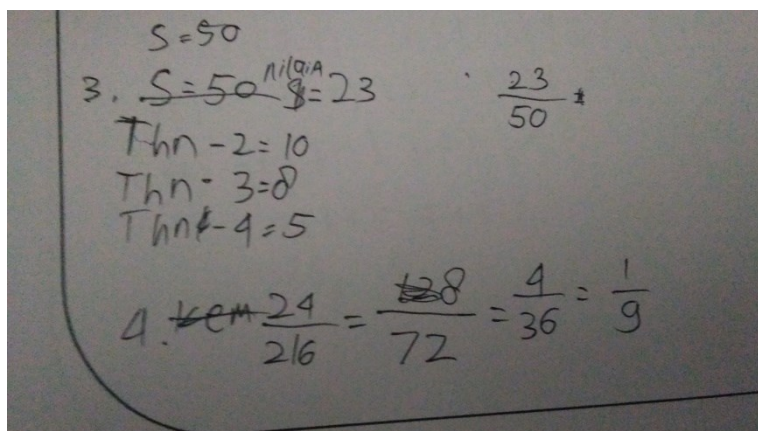 S = 50
3. S = 50 nilai A = 23 23/50
Thn - 2 = 10
Thn - 3 = 8
Thn - 4 = 5
4. 24/216 = 8/72 = 4/36 = 1/9